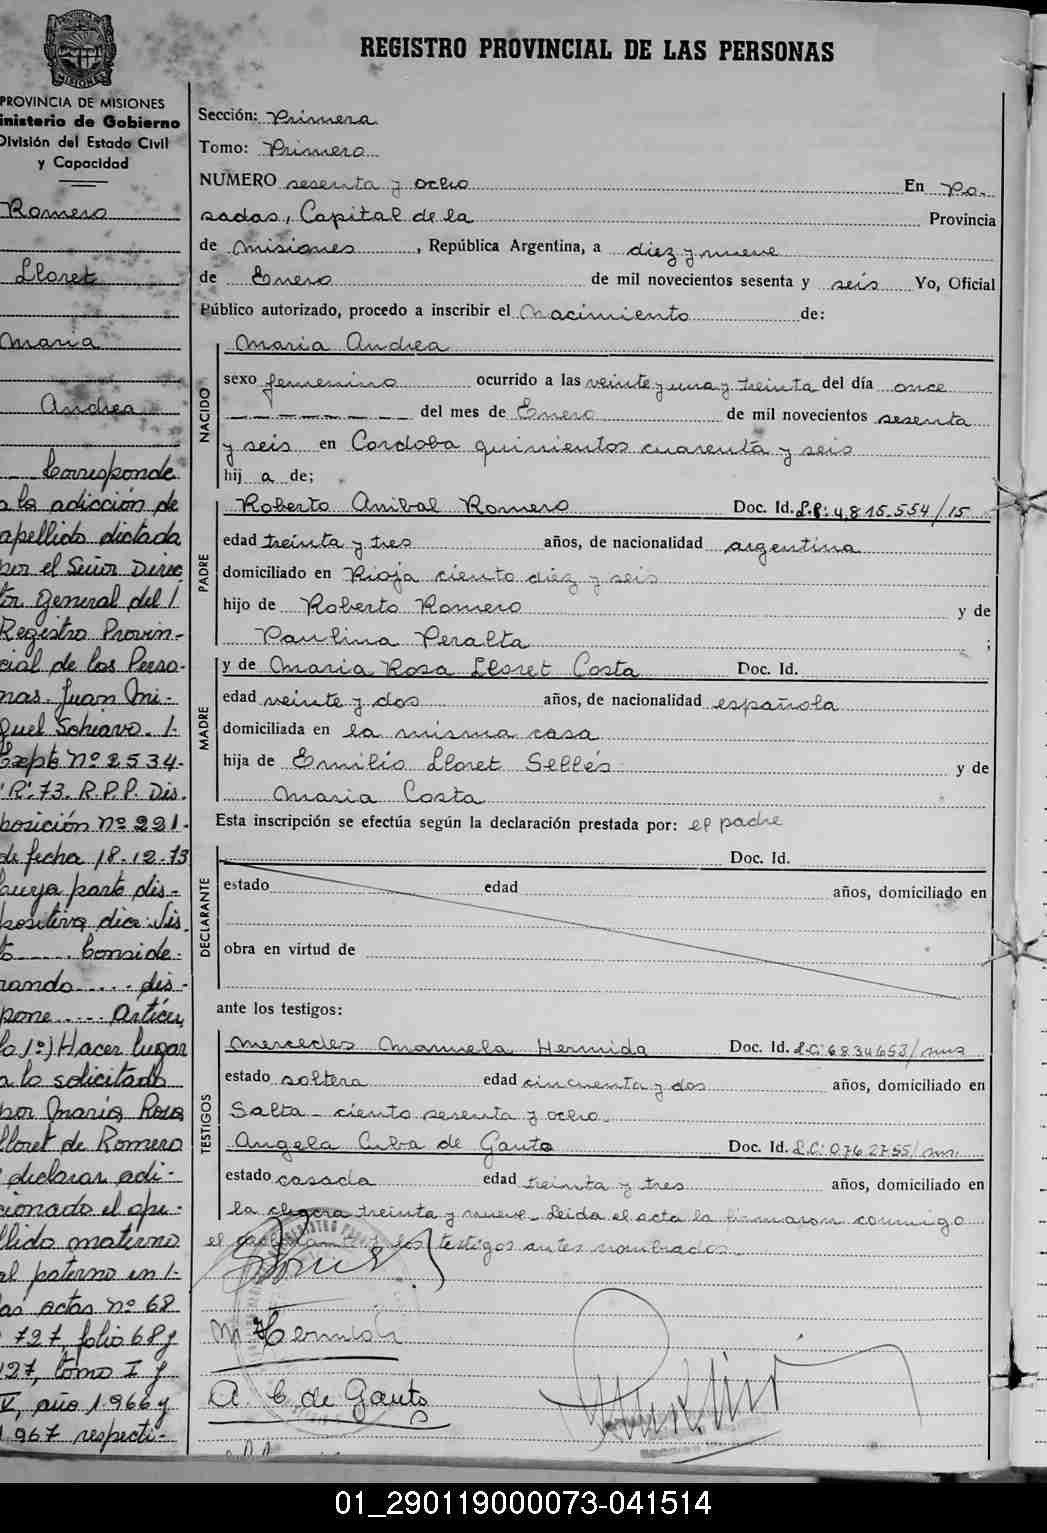 REGISTRO PROVINCIAL DE LAS PERSONAS
PROVINCIA DE MISIONES
inisterio de Gobierno
División del Estado Civil
y Capacidad
Romero
Lloret
Maria
Andrea
Corresponde
a la adicción de
apellido dictada
por el Señor Direc
tor General del
Registro Provin-
cial de las Perso-
nas. Juan Mi-
guel Schiavo.
Expte Nº 2534-
"R".73. R.P.P. Dis.
posición nº 221-
de fecha 18-12-73
cuya parte dis-
positiva dice: Vis.
to ..... Conside-
rando ..... dis-
pone .... Artícu
lo 1º) Hacer lugar
a lo solicitado
por María Rosa
Lloret de Romero
declarar adi-
cionado el ape-
llido materno
al paterno en
las actas nº 68
y 727, folio 68 y
127, tomo I y
IV, año 1.966 y
1.967 respecti-
Sección: Primera
Tomo: Primero
NUMERO sesenta y ocho En Po-
sadas, Capital de la Provincia
de Misiones, República Argentina, a diez y nueve
de Enero de mil novecientos sesenta y seis Yo, Oficial
Público autorizado, procedo a inscribir el Nacimiento de:
NACIDO
Maria Andrea
sexo femenino ocurrido a las veinte y una y treinta del día once
del mes de Enero de mil novecientos sesenta
y seis en Cordoba quinientos cuarenta y seis
hij a de;
PADRE
Roberto Anibal Romero Doc. Id. 4.815.554/15
edad treinta y tres años, de nacionalidad argentina
domiciliado en Rioja ciento diez y seis
hijo de Roberto Romero y de
Paulina Peralta ;
MADRE
y de Maria Rosa Lloret Costa Doc. Id.
edad veinte y dos años, de nacionalidad española
domiciliada en la misma casa
hija de Emilio Lloret Sellés y de
Maria Costa
Esta inscripción se efectúa según la declaración prestada por: el padre
DECLARANTE
Doc. Id.
estado edad años, domiciliado en
obra en virtud de
ante los testigos:
TESTIGOS
Mercedes Manuela Hermida Doc. Id. L.C: 6834653/mns
estado soltera edad cincuenta y dos años, domiciliado en
Salta - ciento sesenta y ocho.
Angela Cuba de Gauto Doc. Id. L.C: 0762755/mns.
estado casada edad treinta y tres años, domiciliado en
la chacra treinta y nueve. Leida el acta la firmaron conmigo
el los testigos antes nombrados.
M. Hermida
A. C. de Gauto
01_290119000073-041514